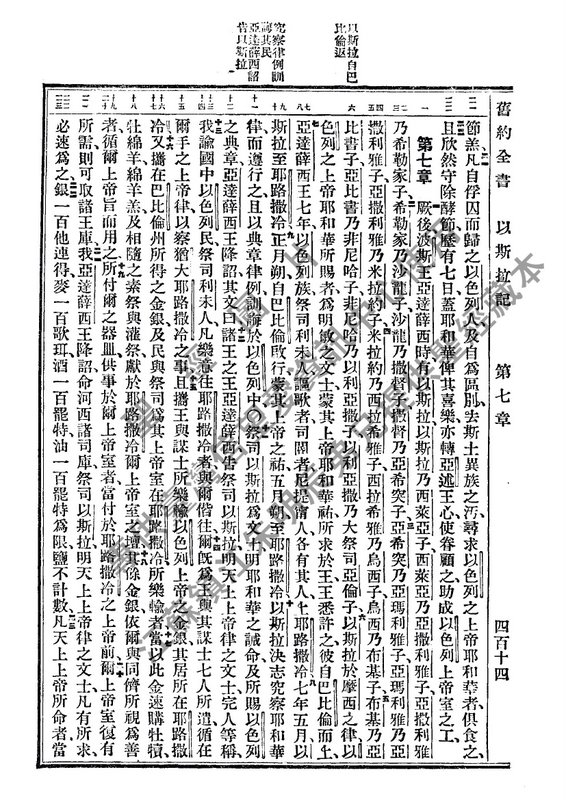 舊約全書 以斯拉記 第七章 四百十四
以斯拉自巴
比倫返
究察律例訓
誨其民
亞達薛西詔
告以斯拉
節羔凡自俘囚而歸之以色列人及自爲區別去斯土異族之汚尋求以色列之上帝耶和華者俱食之
且欣然守除酵節歷有七日蓋耶和華俾其喜樂亦轉亞述王心使眷顧之助成以色列上帝室之工
第七章 厥後波斯王亞達薛西時有以斯拉以斯拉乃西萊亞子西萊亞乃亞撒利雅子亞撒利雅
乃希勒家子希勒家乃沙龍子沙龍乃撒督子撒督乃亞希突子亞希突乃亞瑪利雅子亞瑪利雅乃亞
撒利雅子亞撒利雅乃米拉約子米拉約乃西拉希雅子西拉希雅乃烏西子烏西乃布基子布基乃亞
比書子亞比書乃非尼哈子非尼哈乃以利亞撒子以利亞撒乃大祭司亞倫子以斯拉於摩西之律以
色列之上帝耶和華所賜者爲明敏之文士蒙其上帝耶和華祐所求於王王悉許之彼自巴比倫而上
亞達薛西王七年以色列族祭司利未人謳歌者司閽者尼提甯人各有其人上耶路撒冷七年五月以
斯拉至耶路撒冷正月朔自巴比倫啟行蒙其上帝之祐五月朔至耶路撒冷以斯拉決志究察耶和華
律而遵行之且以典章律例訓誨於以色列中祭司以斯拉爲文士明耶和華之誡命及所賜以色列
之典章亞達薛西王降詔其文曰諸王之王亞達薛西告祭司以斯拉明天上上帝律之文士完人等稱
我諭國中以色列民祭司利未人凡樂意往耶路撒冷者與爾偕往爾旣爲王與其謀士七人所遣循在
爾手之上帝律以察猶大耶路撒冷之事且攜王與謀士所樂輸以色列上帝之金銀其居所在耶路撒
冷又攜在巴比倫州所得之金銀及民與祭司爲其上帝室在耶路撒冷所樂輸者當以此金速購牡犢
牡綿羊綿羔及相隨之素祭與灌祭獻於耶路撒冷爾上帝室之壇其餘金銀依爾與同儕所視爲善
者循爾上帝旨而用之所付爾之器皿供事於爾上帝室者當付於耶路撒冷之上帝前爾上帝室復有
所需則可取諸王庫我亞達薛西王降詔命河西諸司庫祭司以斯拉明天上上帝律之文士凡有所求
必速爲之銀一百他連得麥一百歌珥酒一百罷特油一百罷特爲限鹽不計數凡天上上帝所命者當